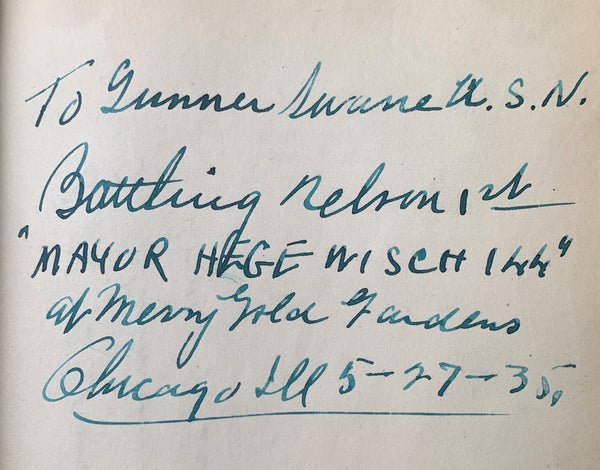 To Gunner Swane U.S.N.
Battling Nelson 1st
"MAYOR HEGEWISCH ILL"
at Merry Gold Gardens
Chicago Ill 5-27-35,